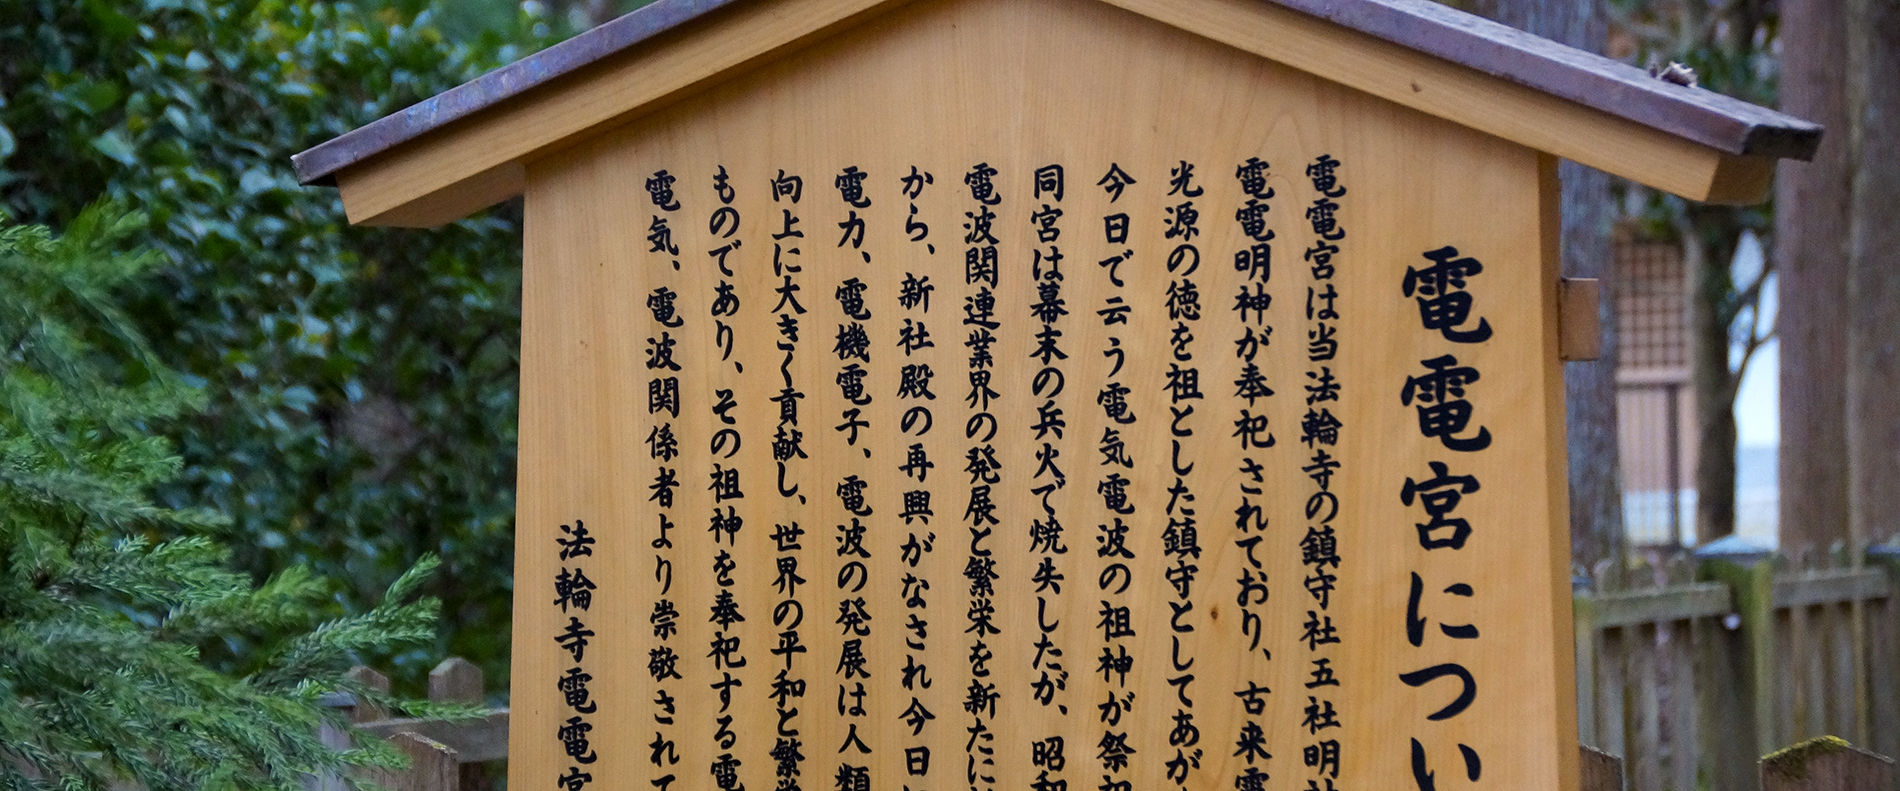 電電宮につい
電電宮は当法輪寺の鎮守社五社明
電電明神が奉祀されており、古来電
光源の徳を祖とした鎮守としてあが
今日で云う電気電波の祖神が祭祀
同宮は幕末の兵火で焼失したが、昭和
電波関連業界の発展と繁栄を新たに
から、新社殿の再興がなされ今日
電力、電機電子、電波の発展は人類
向上に大きく貢献し、世界の平和と繁栄
ものであり、その祖神を奉祀する電
電気、電波関係者より崇敬されて
法輪寺電電宮